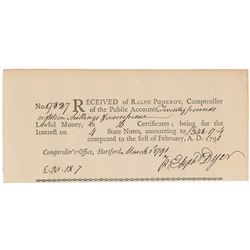 No. 9827 RECEIVED of RALPH POMEROY, Comptroller
of the Public Accounts, Twenty pounds
eighteen shillings & seven pence
Lawful Money, in 16 Certificates; being for the
Interest on 4 State Notes, amounting to £348.0.4
computed to the first of February, A. D. 1791
Comptroller's-Office, Hartford, March 1 1791
£20.18.7
Dyer